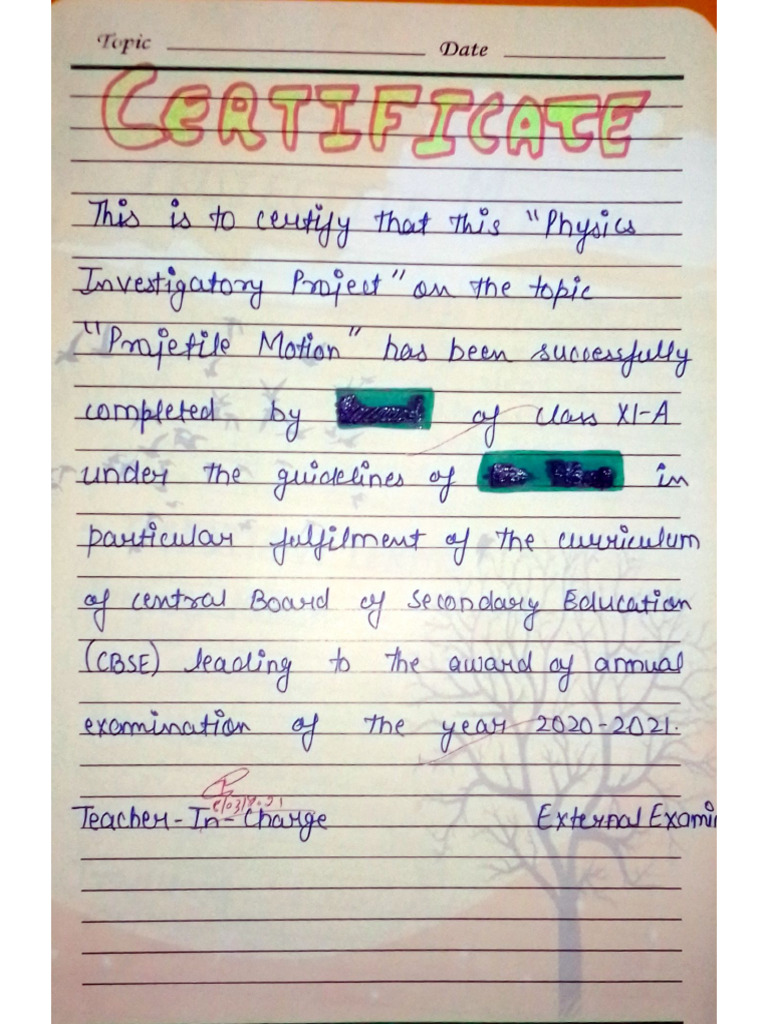 Topic Date
CERTIFICATE
This is to certify that this "Physics
Investigatory Project" on the topic
"Projetile Motion" has been successfully
completed by of class XI-A
under the guidelines of in
particular fulfilment of the curriculum
of central Board of Secondary Education
(CBSE) leading to the award of annual
examination of the year 2020-2021.
Teacher-In-Charge External Exami